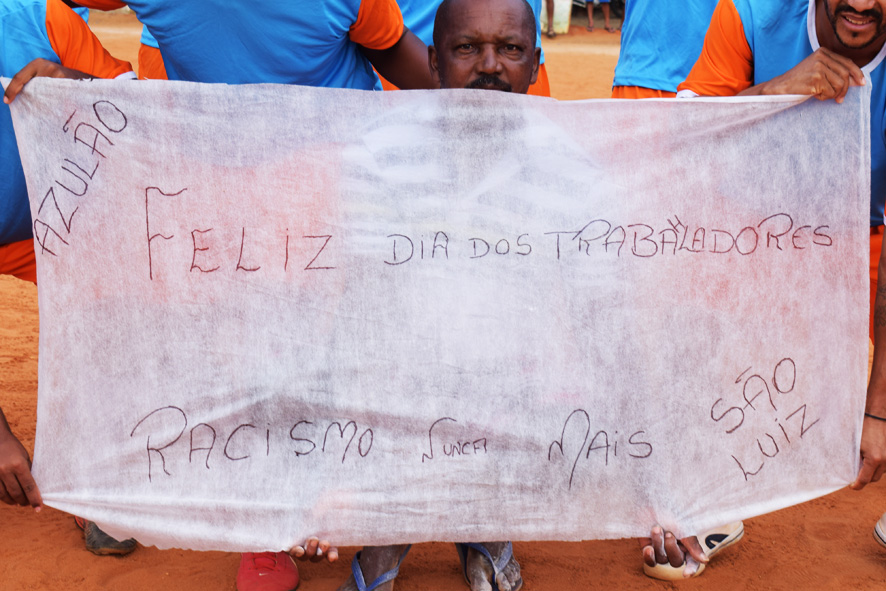 AZULÃO
FELIZ DIA DOS TRABALADORES
RACISMO NUNCA MAIS
SÃO
LUIZ